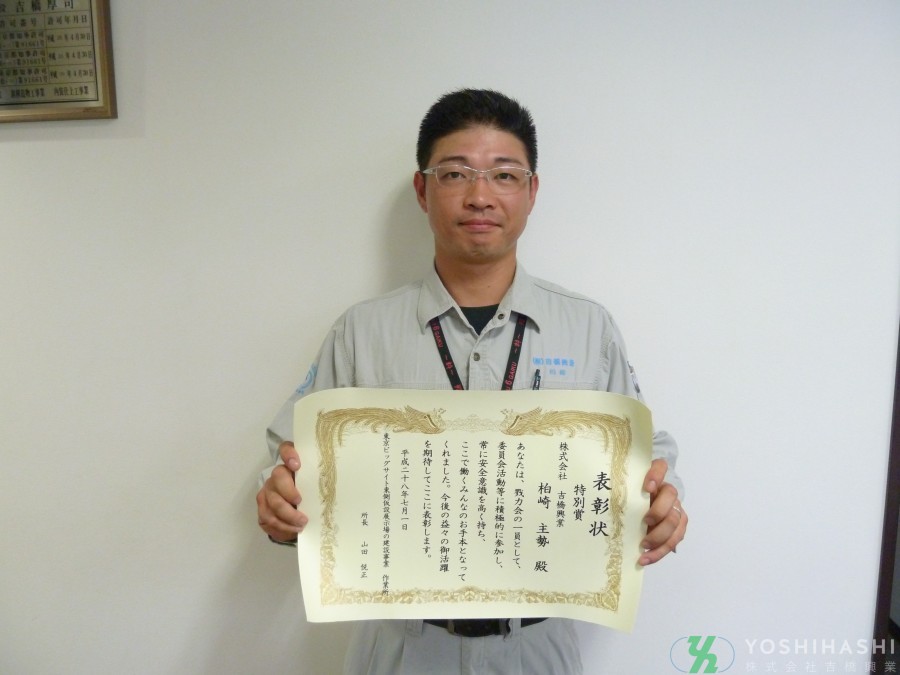 表彰状
特別賞
株式会社 吉橋興業
柏崎 主勢 殿
あなたは、戮力会の一員として、
委員会活動等に積極的に参加し、
常に安全意識を高く持ち、
ここで働くみんなのお手本となって
くれました。今後の益々の御活躍
を期待してここに表彰します。
平成二十八年七月一日
東京ビッグサイト東側仮設展示場の建設事業 作業所
所長 山田 俊正
YOSHIHASHI
株式会社吉橋興業